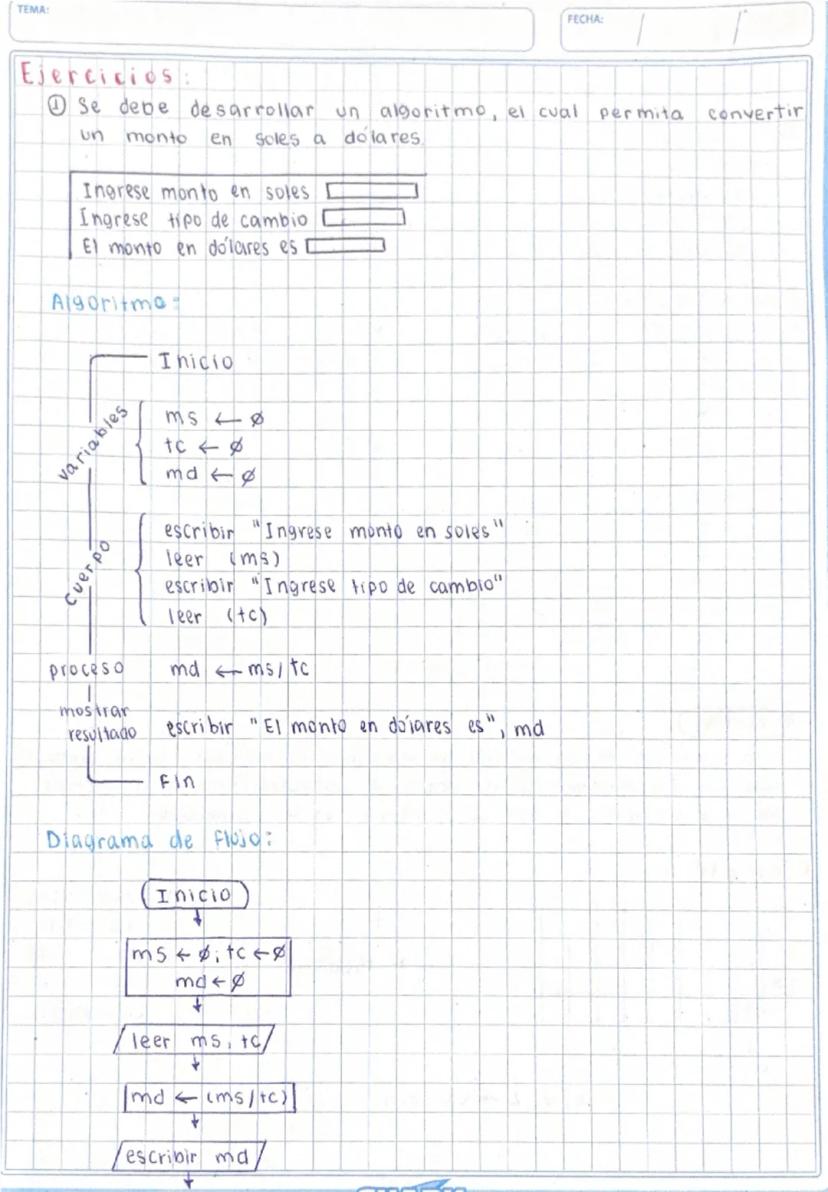 TEMA:
FECHA:
Ejercicios:
① Se debe desarrollar un algoritmo, el cual permita convertir
un monto en soles a dólares.
Ingrese monto en soles
Ingrese tipo de cambio
El monto en dólares es
Algoritmo:
Inicio
variables
ms ← ∅
tc ← ∅
md ← ∅
cuerpo
escribir "Ingrese monto en soles"
leer (ms)
escribir "Ingrese tipo de cambio"
leer (tc)
proceso md ← ms/tc
mostrar
resultado escribir "El monto en dólares es", md
Fin
Diagrama de flujo:
Inicio
ms ← ∅; tc ← ∅
md ← ∅
leer ms, tc
md ← (ms/tc)
escribir md